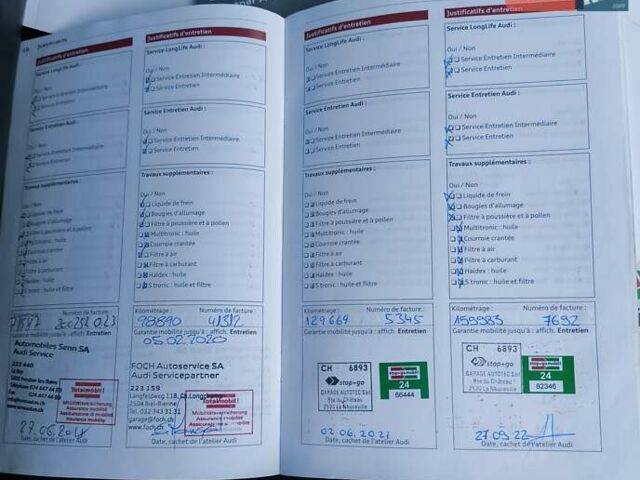 Justificatifs
Justificatifs d'entretien
Service LongLife Audi :
Oui / Non
Service Entretien Intermédiaire
Service Entretien
Service Entretien Audi :
Oui / Non
Service Entretien Intermédiaire
Service Entretien
Travaux supplémentaires :
Oui / Non
Liquide de frein
Bougies d'allumage
Filtre à poussière et à pollen
Multitronic : huile
Courroie crantée
Filtre à air
Filtre à carburant
Haldex : huile
S tronic : huile et filtre
Kilométrage :
Numéro de facture :
Garantie mobilité jusqu'à : affich. Entretien
Automobiles Senn SA
Audi Service
223 440
Date, cachet de l'atelier Audi
Justificatifs d'entretien
Service LongLife Audi :
Oui / Non
Service Entretien Intermédiaire
Service Entretien
Service Entretien Audi :
Oui / Non
Service Entretien Intermédiaire
Service Entretien
Travaux supplémentaires :
Oui / Non
Liquide de frein
Bougies d'allumage
Filtre à poussière et à pollen
Multitronic : huile
Courroie crantée
Filtre à air
Filtre à carburant
Haldex : huile
S tronic : huile et filtre
Kilométrage : Numéro de facture :
98890
Garantie mobilité jusqu'à : affich. Entretien
05.02.2020
FOCH Autoservice SA
Audi Servicepartner
223 159
Längfeldweg 118, Ch.Longchamp
2504 Biel-Bienne
Tel. 032 343 31 31
garage@foch.
www.foch
Totalmobil!
Mobilitätsversicherung
Assurance mobilité
Date, cachet de l'atelier Audi
Justificatifs d'entretien
Service LongLife Audi :
Oui / Non
Service Entretien Intermédiaire
Service Entretien
Service Entretien Audi :
Oui / Non
Service Entretien Intermédiaire
Service Entretien
Travaux supplémentaires :
Oui / Non
Liquide de frein
Bougies d'allumage
Filtre à poussière et à pollen
Multitronic : huile
Courroie crantée
Filtre à air
Filtre à carburant
Haldex : huile
S tronic : huile et filtre
Kilométrage : Numéro de facture :
129669 5345
Garantie mobilité jusqu'à : affich. Entretien
CH 6893
stop+go
GARAGE AUTOTEC Sàrl
Rte du Château
2520 La Neuveville
24
66444
02.06.2021
Date, cachet de l'atelier Audi
Justificatifs d'entretien
Service LongLife Audi :
Oui / Non
Service Entretien Intermédiaire
Service Entretien
Service Entretien Audi :
Oui / Non
Service Entretien Intermédiaire
Service Entretien
Travaux supplémentaires :
Oui / Non
Liquide de frein
Bougies d'allumage
Filtre à poussière et à pollen
Multitronic : huile
Courroie crantée
Filtre à air
Filtre à carburant
Haldex : huile
S tronic : huile et filtre
Kilométrage : Numéro de facture :
159983 7692
Garantie mobilité jusqu'à : affich. Entretien
CH 6893
stop+go
GARAGE AUTOTEC Sàrl
Rte du Château
2520 La Neuveville
24
82346
27.09.22
Date, cachet de l'atelier Audi